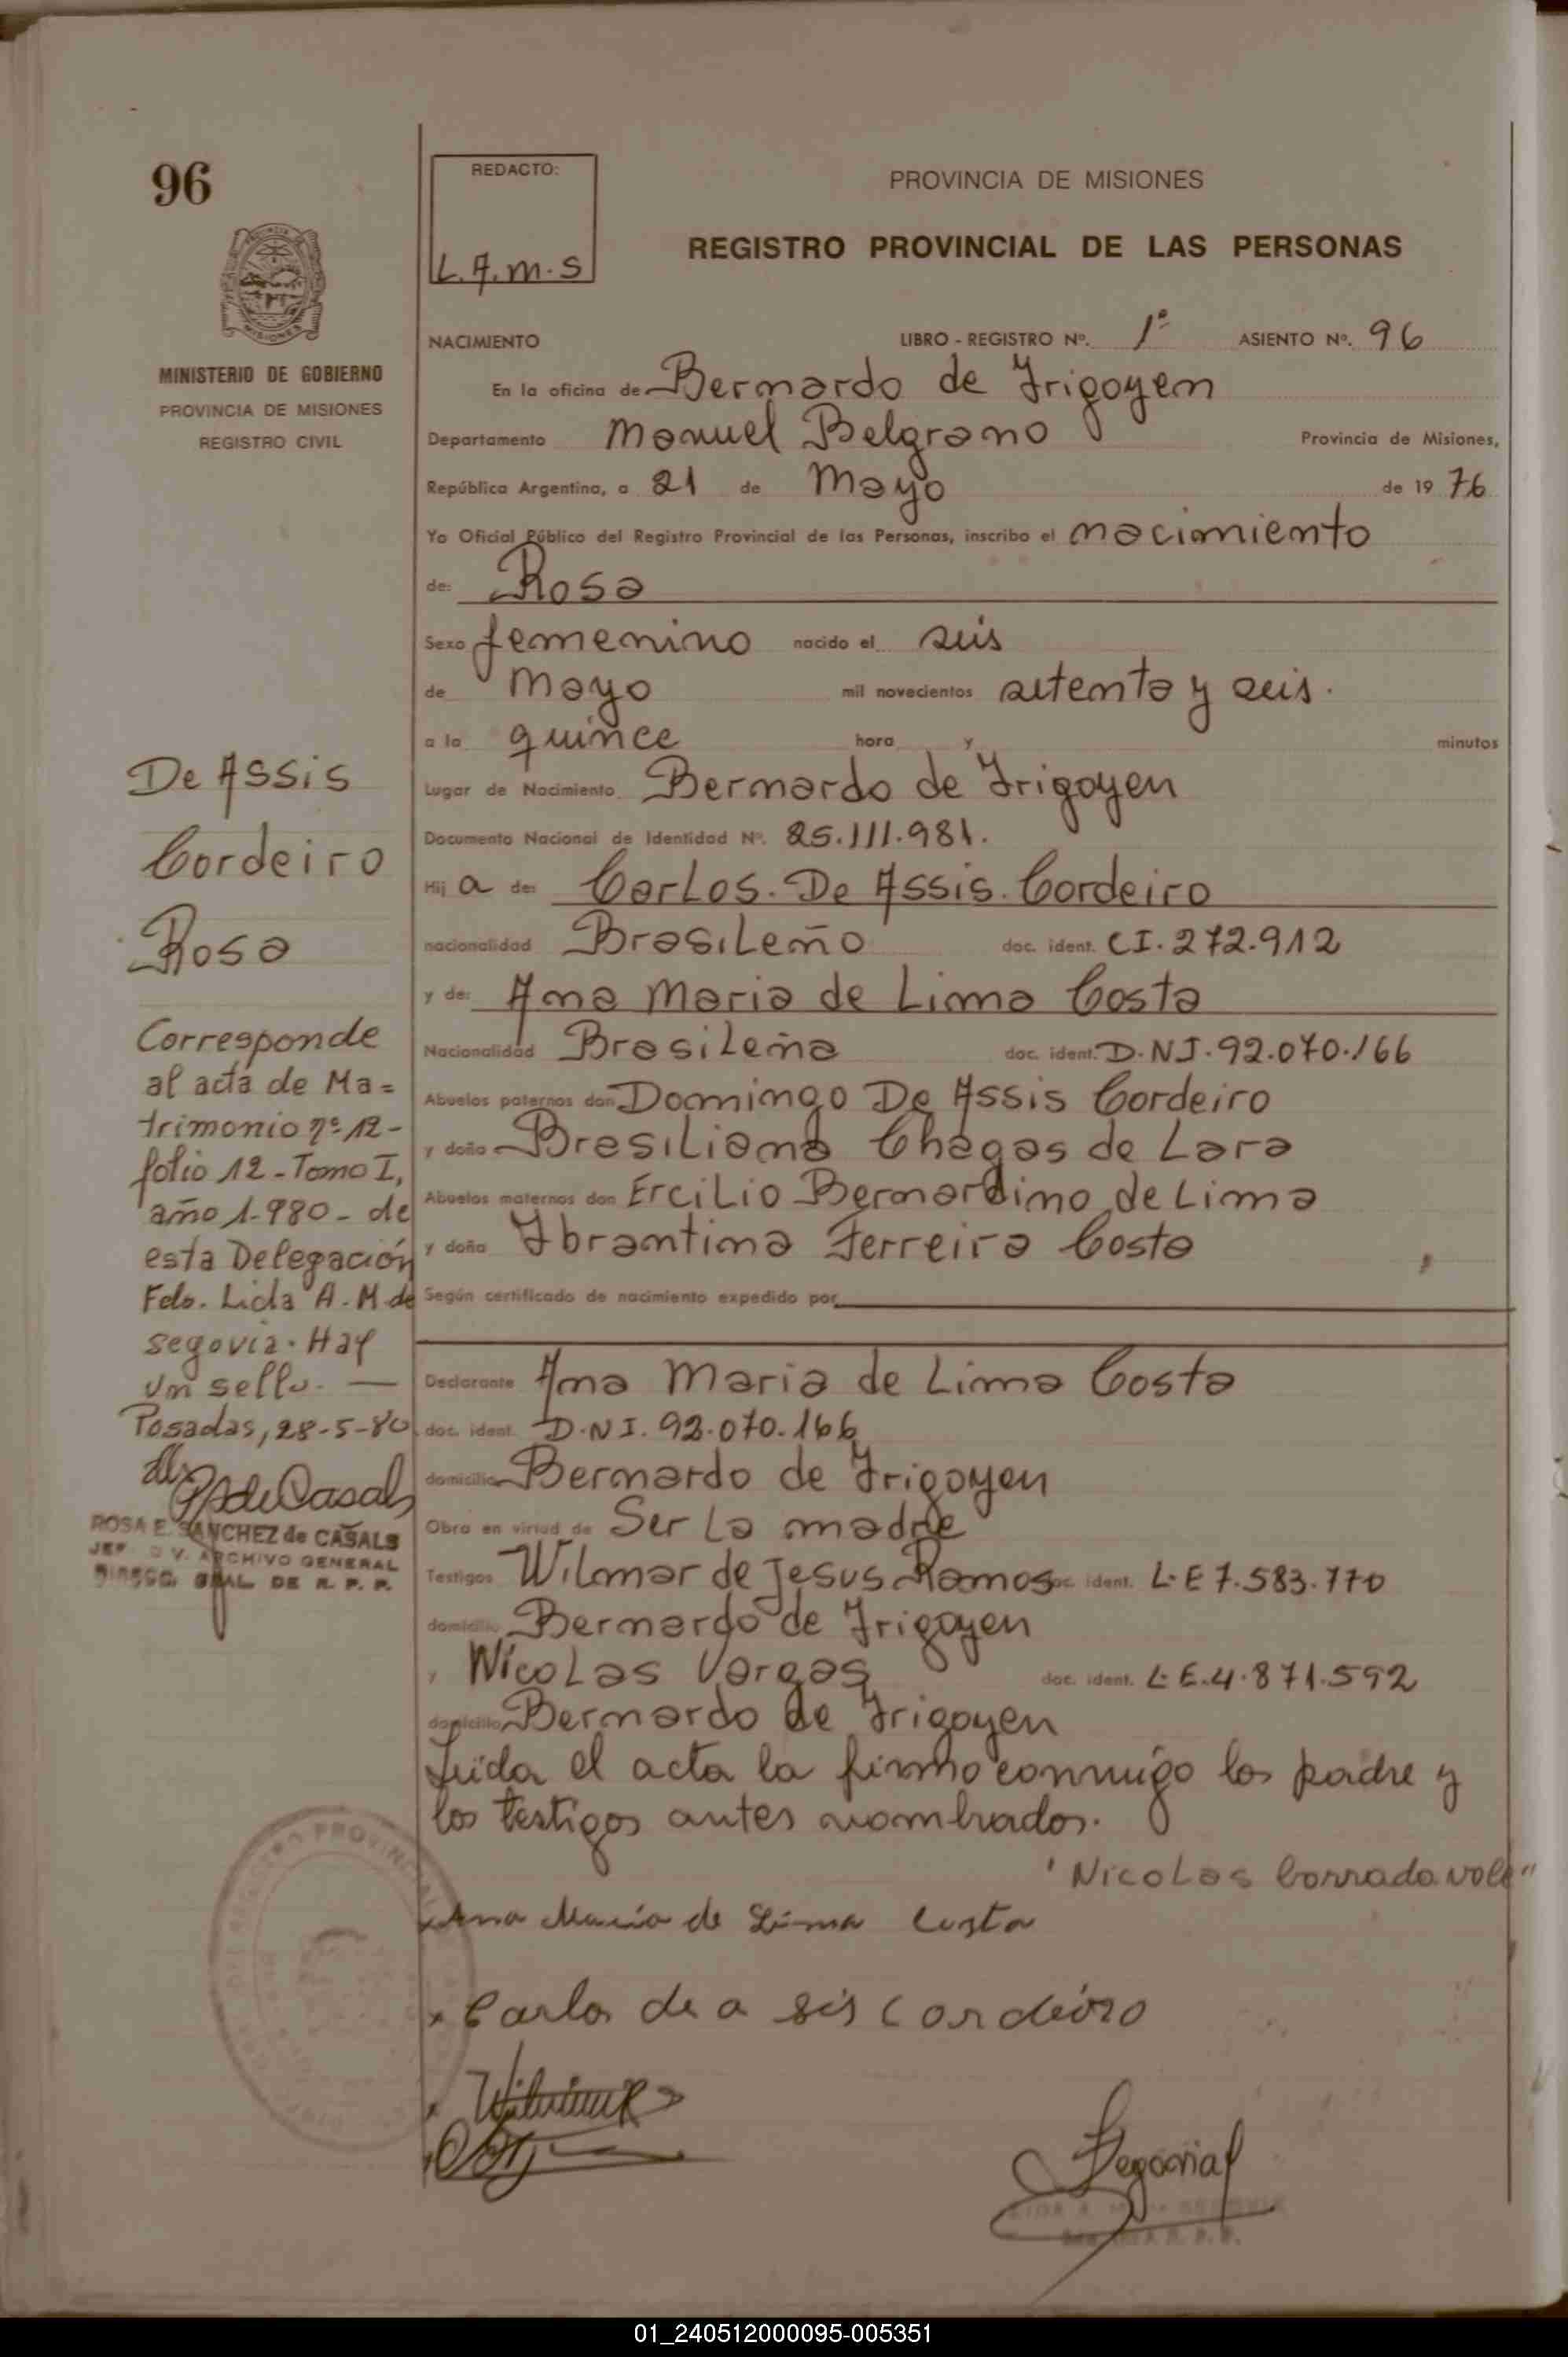 96
REDACTO:
L.A.M.S
PROVINCIA DE MISIONES
REGISTRO PROVINCIAL DE LAS PERSONAS
MINISTERIO DE GOBIERNO
PROVINCIA DE MISIONES
REGISTRO CIVIL
NACIMIENTO LIBRO - REGISTRO Nº. 1º ASIENTO Nº. 96
En la oficina de Bernardo de Irigoyen
Departamento Manuel Belgrano Provincia de Misiones,
República Argentina, a 21 de Mayo de 19 76
Yo Oficial Público del Registro Provincial de las Personas, inscribo el nacimiento
de: Rosa
Sexo femenino nacido el seis
de Mayo mil novecientos setenta y seis.
a la quince hora y minutos
Lugar de Nacimiento Bernardo de Irigoyen
Documento Nacional de Identidad Nº. 25.111.981.
Hij a de: Carlos. De Assis. Cordeiro
nacionalidad Brasileño doc. ident. CI. 272.912
y de: Ana Maria de Lima Costa
Nacionalidad Brasileña doc. ident. D.NI. 92.070.166
Abuelos paternos don Domingo De Assis Cordeiro
y doña Brasiliana Chagas de Lara
Abuelos maternos don Ercilio Bernardino de Lima
y doña Ibrantina Ferreira Costa
Según certificado de nacimiento expedido por
Declarante Ana Maria de Lima Costa
doc. ident. D.NI. 92.070.166
domicilio Bernardo de Irigoyen
Obra en virtud de Ser La madre
Testigos Wilmar de Jesus Ramos doc. ident. L.E 7.583.770
domicilio Bernardo de Irigoyen
y Nicolas Vargas doc. ident. L.E.4.871.592
domicilio Bernardo de Irigoyen
Leida el acta la firma conmigo los padre y
los testigos antes nombrados.
"Nicolas borrado vale"
Ana Maria de Lima Costa
x Carlos de a sis cordeiro
Segovia
De Assis
Cordeiro
Rosa
Corresponde
al acta de Ma=
trimonio nº 12-
folio 12 - Tomo I,
año 1.980 - de
esta Delegación
Fdo. Lida A. M. de
Segovia. Hay
un sello. —
Posadas, 28-5-80
R S de Casals
ROSA E. SANCHEZ de CASALS
JEF DIV. ARCHIVO GENERAL
DIRECC. GRAL DE R. P. P.
01_240512000095-005351